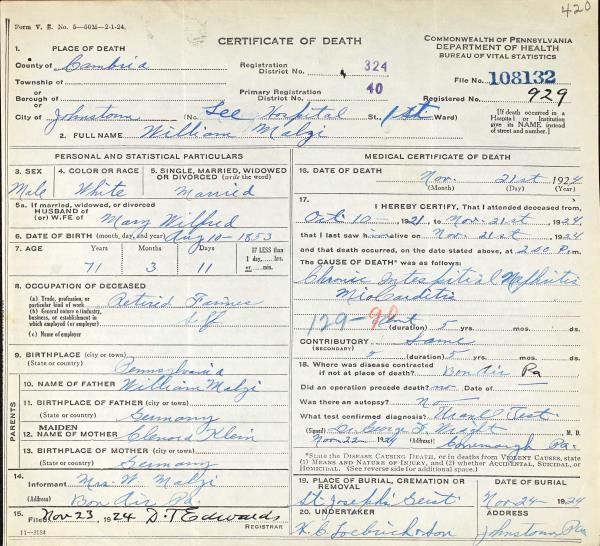 420
Form V. S. No. 5—50M—2-1-24.
CERTIFICATE OF DEATH
COMMONWEALTH OF PENNSYLVANIA
DEPARTMENT OF HEALTH
BUREAU OF VITAL STATISTICS
1. PLACE OF DEATH
County of Cambria
Registration District No. 324
File No. 108132
Township of
Primary Registration District No. 40
Registered No. 929
Borough of
City of Johnstown (No. Lee Hospital St., 1st Ward)
[If death occurred in a Hospital or Institution give its NAME instead of street and number.]
2. FULL NAME William Malzi
PERSONAL AND STATISTICAL PARTICULARS
3. SEX Male
4. COLOR OR RACE White
5. SINGLE, MARRIED, WIDOWED OR DIVORCED (write the word) Married
5a. If married, widowed, or divorced
HUSBAND of (or) WIFE of Mary Wilfred
6. DATE OF BIRTH (month, day, and year) Aug 10 - 1853
7. AGE Years 71 Months 3 Days 11 IF LESS than 1 day, ....hrs. or ....min.
8. OCCUPATION OF DECEASED
(a) Trade, profession, or particular kind of work Retired Farmer
(b) General nature of industry, business, or establishment in which employed (or employer) self
(c) Name of employer
9. BIRTHPLACE (city or town)
(State or country) Pennsylvania
PARENTS
10. NAME OF FATHER William Malzi
11. BIRTHPLACE OF FATHER (city or town)
(State or country) Germany
12. MAIDEN NAME OF MOTHER Clenora Klein
13. BIRTHPLACE OF MOTHER (city or town)
(State or country) Germany
14. Informant Mrs. W. Malzi
(Address) Bon Air Pa.
15. Filed Nov 23, 1924 D. T. Edwards
REGISTRAR
11—3184
MEDICAL CERTIFICATE OF DEATH
16. DATE OF DEATH Nov. 21st 1924
(Month) (Day) (Year)
17. I HEREBY CERTIFY, That I attended deceased from,
Oct 10 1921, to Nov. 21st, 1924,
that I last saw him alive on Nov. 21st, 1924
and that death occurred, on the date stated above, at 2:00 P.m.
The CAUSE OF DEATH* was as follows:
Chronic Interstitial Nephritis
Miocarditis
129-90
(duration) 5 yrs. mos. ds.
CONTRIBUTORY Same
(SECONDARY)
(duration) 5 yrs. mos. ds.
18. Where was disease contracted if not at place of death? Bon Air Pa
Did an operation precede death? no Date of
Was there an autopsy? No
What test confirmed diagnosis? Uranl Test
(Signed) Dr. George F. Wright, M. D.
Nov. 22, 1924 (Address) Conemaugh Pa.
*State the DISEASE CAUSING DEATH, or in deaths from VIOLENT CAUSES, state (1) MEANS AND NATURE OF INJURY, and (2) whether ACCIDENTAL, SUICIDAL, or HOMICIDAL. (See reverse side for additional space.)
19. PLACE OF BURIAL, CREMATION OR REMOVAL St. Josephs
DATE OF BURIAL Nov-24-1924
20. UNDERTAKER
ADDRESS Johnstown Pa